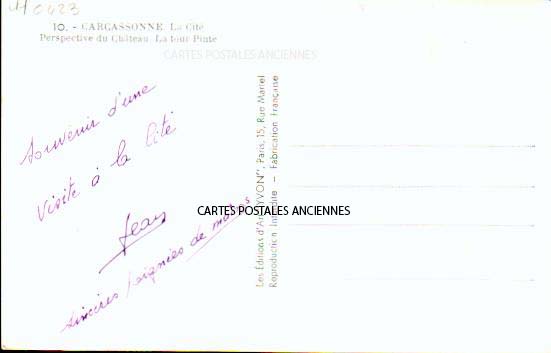 10. - CARCASSONNE. La Cité
Perspective du Château. La tour Pinte
CARTES POSTALES ANCIENNES
Souvenir d'une
visite à la Cité
Jean
sincères poignées de mains
CARTES POSTALES ANCIENNES
Les Éditions d'Art "YVON", Paris, 15, Rue Martel
Reproduction Interdite — Fabrication Française